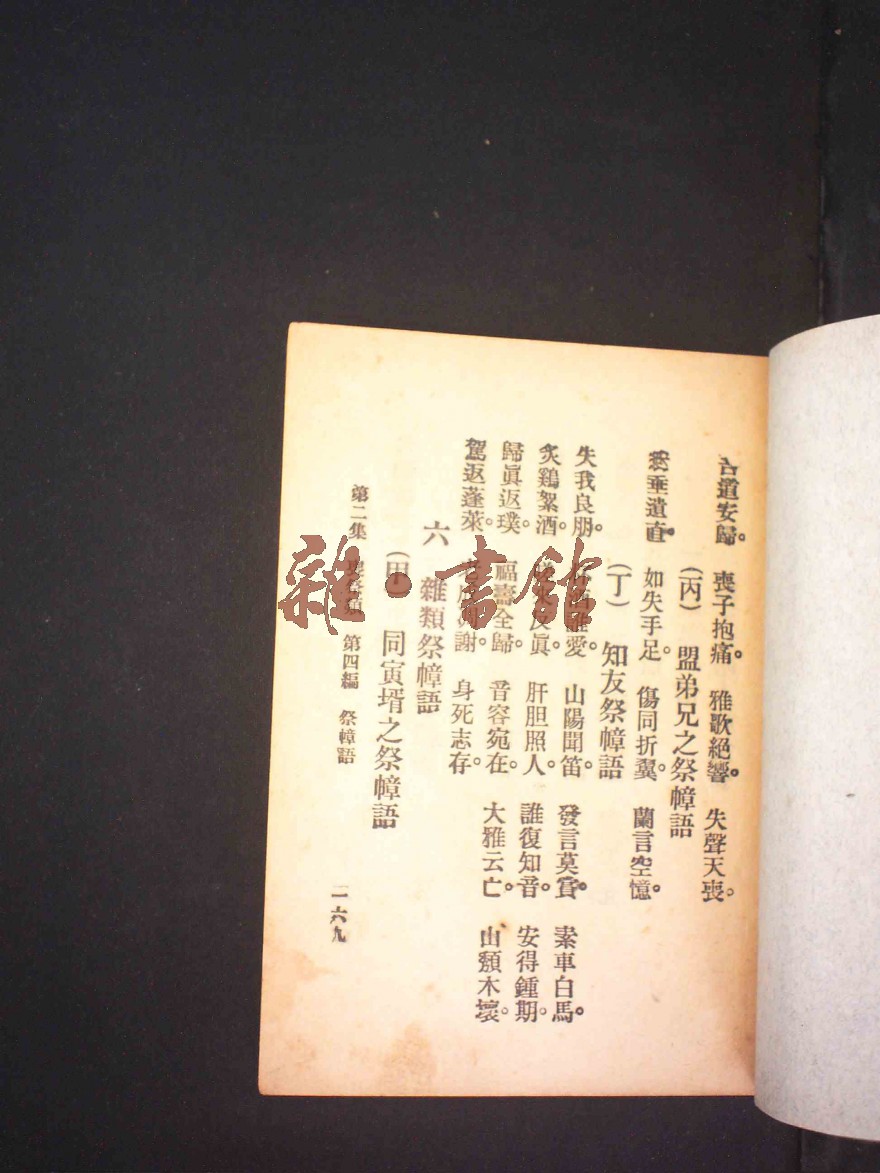 古道安歸。 喪子抱痛。 雅歌絕響。 失聲天喪。
(丙) 盟弟兄之祭幛語
垂遺直。 如失手足。 傷同折翼。 蘭言空憶。
(丁) 知友祭幛語
失我良朋。 山陽聞笛。 發言莫賞。 素車白馬。
炙鷄絮酒。 反眞。 肝胆照人。 誰復知音。 安得鍾期。
歸眞返璞。 福壽全歸。 音容宛在。 大雅云亡。 山頹木壞。
駕返蓬萊。 謝。 身死志存。
六 雜類祭幛語
(甲) 同寅壻之祭幛語
第二集 第四編 祭幛語 二六九
雜·書館